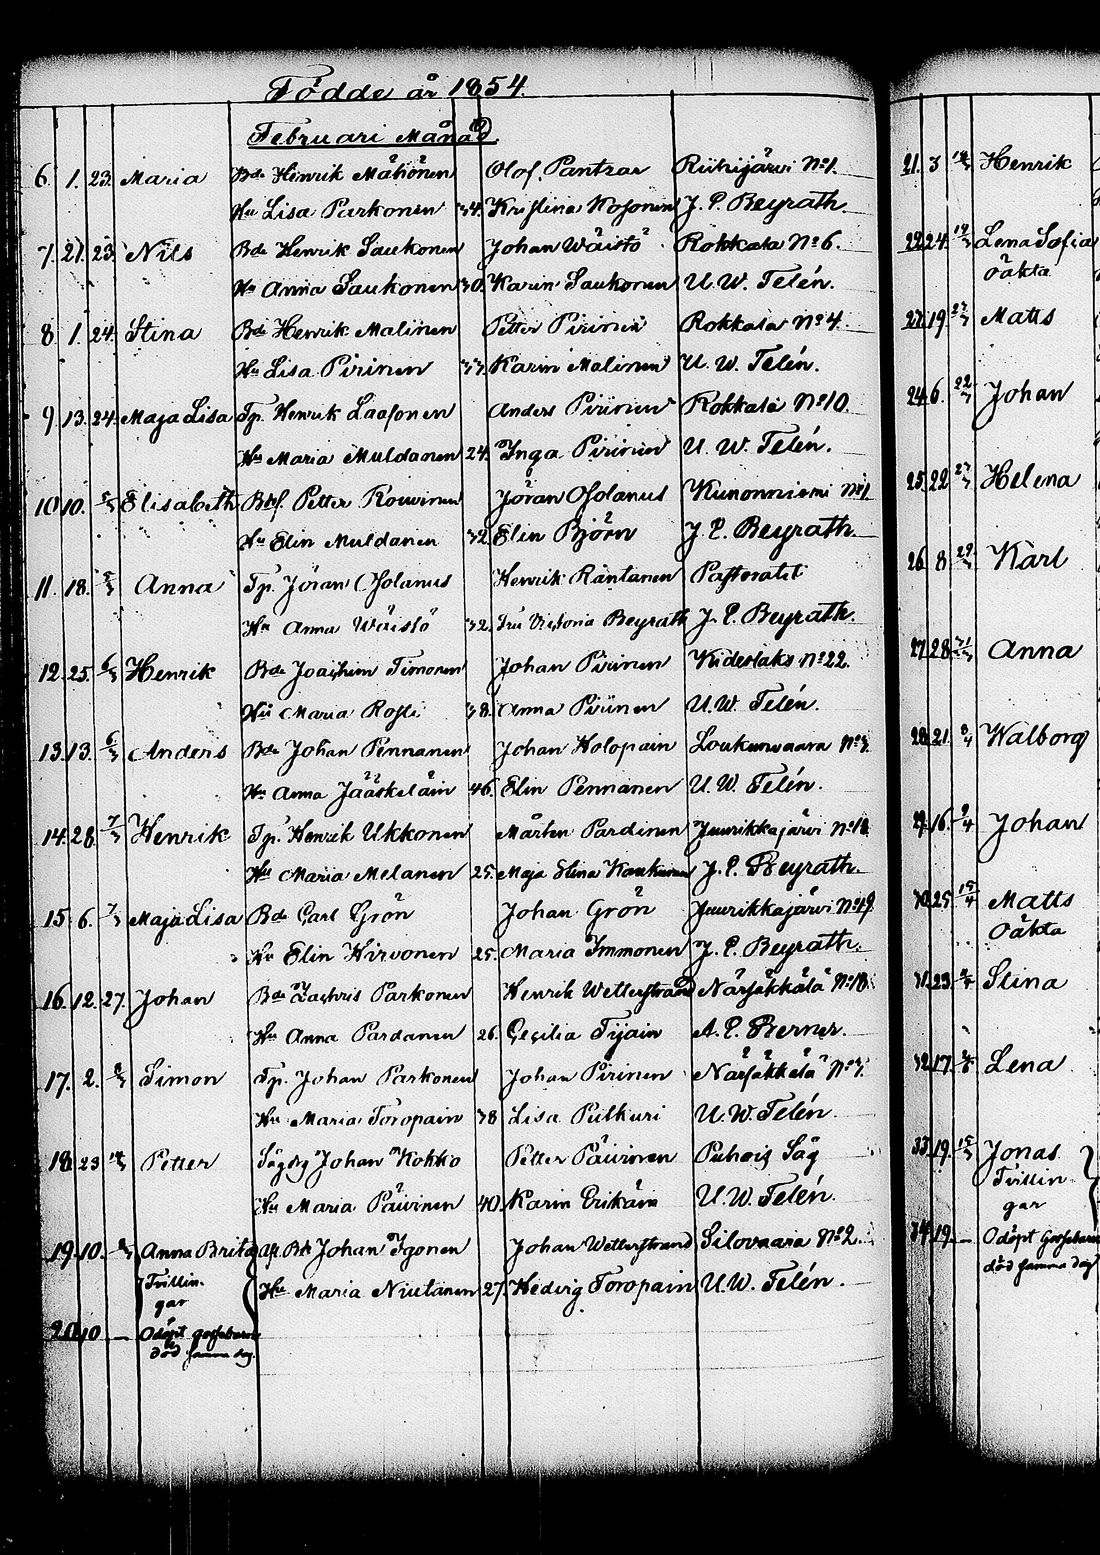 Födde år 1854.
Februari Månad.
6. 1. 23. Maria Bde Henrik Måhönen Olof Pantzar Riihijärvi No 1.
Hu Lisa Parkonen 34. Kristina Kosonen J. P. Beyrath.
7. 21. 23. Nils Bde Henrik Saukonen Johan Wäistö Rokkala No 6.
Hu Anna Saukonen 30. Karin Saukonen U. W. Telén.
8. 1. 24. Stina Bde Henrik Malinen Petter Pirinen Rokkala No 4.
Hu Lisa Pirinen 33. Karin Malinen U. W. Telén.
9. 13. 24. Maja Lisa Tp. Henrik Laasonen Anders Pirinen Rokkala No 10.
Hu Maria Muldanen 24. Inga Pirinen U. W. Telén.
10. 10. 5/3 Elisabeth Petter Rouvinen Jöran Solanus Kunonniemi No 1
Hu Elin Muldanen 32. Elin Björn J. P. Beyrath.
11. 18. 5/3 Anna Tp. Jöran Solanus Henrik Räntänen Pastoratet
Hu Anna Wäistö 32. Fru Victoria Beyrath J. P. Beyrath.
12. 25. 6/3 Henrik Bde Joachim Timonen Johan Pirinen Kideslaks No 22.
Hu Maria Rossi 38. Anna Piiinen U. W. Telén.
13. 13. 6/3 Anders Bde Johan Pennanen Johan Holopain Loukunvaara No 3.
Hu Anna Jääskeläin 46. Elin Pennanen U. W. Telén.
14. 28. 7/3 Henrik Tp. Henrik Ukkonen Mårten Pardinen Juurikkajärvi No 18.
Hu Maria Melanen 25. Maja Stina J. P. Beyrath.
15. 6. 7/3 Maja Lisa Bde Carl Grön Johan Grön Juurikkajärvi No 19
Hu Elin Hirvonen 25. Maria Immonen J. P. Beyrath.
16. 12. 27. Johan Bde Zachris Parkonen Henrik Wetterstrand Närsäkkälä No 18.
Hu Anna Pardanen 26. Cecilia Tijain A. P. Berner.
17. 2. 8/3 Simon Tp. Johan Parkonen Johan Pirinen Närsäkkälä No 3.
Hu Maria Toropain 38 Lisa Pulkuri U. W. Telén.
18. 23 Petter Sågdg Johan Kokko Petter Päivinen Puhois Såg
Hu Maria Päivinen 40. Karin Erikäin U. W. Telén.
19. 10. Anna Brita Johan Igonen Johan Wetterstrand Silovaara No 2.
Tvillin- Hu Maria Niutanen 27. Hedvig Toropain U. W. Telén.
gar
20. 10 — Odöpt gossebarn
död samma dag.
21. 3 Henrik
22. 24. Lena Sofia
oäkta
19 Matts
24. 6. 22/3 Johan
25. 22 27/3 Helena
26. 8 29/3 Karl
27. 28 Anna
28. 21. Walborg
29. 16. 9/4 Johan
30. 25 Matts
oäkta
31. 23 Stina
32. 17. Lena
33. 19. Jonas
Tvillin
gar
34. 19. — Odöpt gossebarn
död samma dag